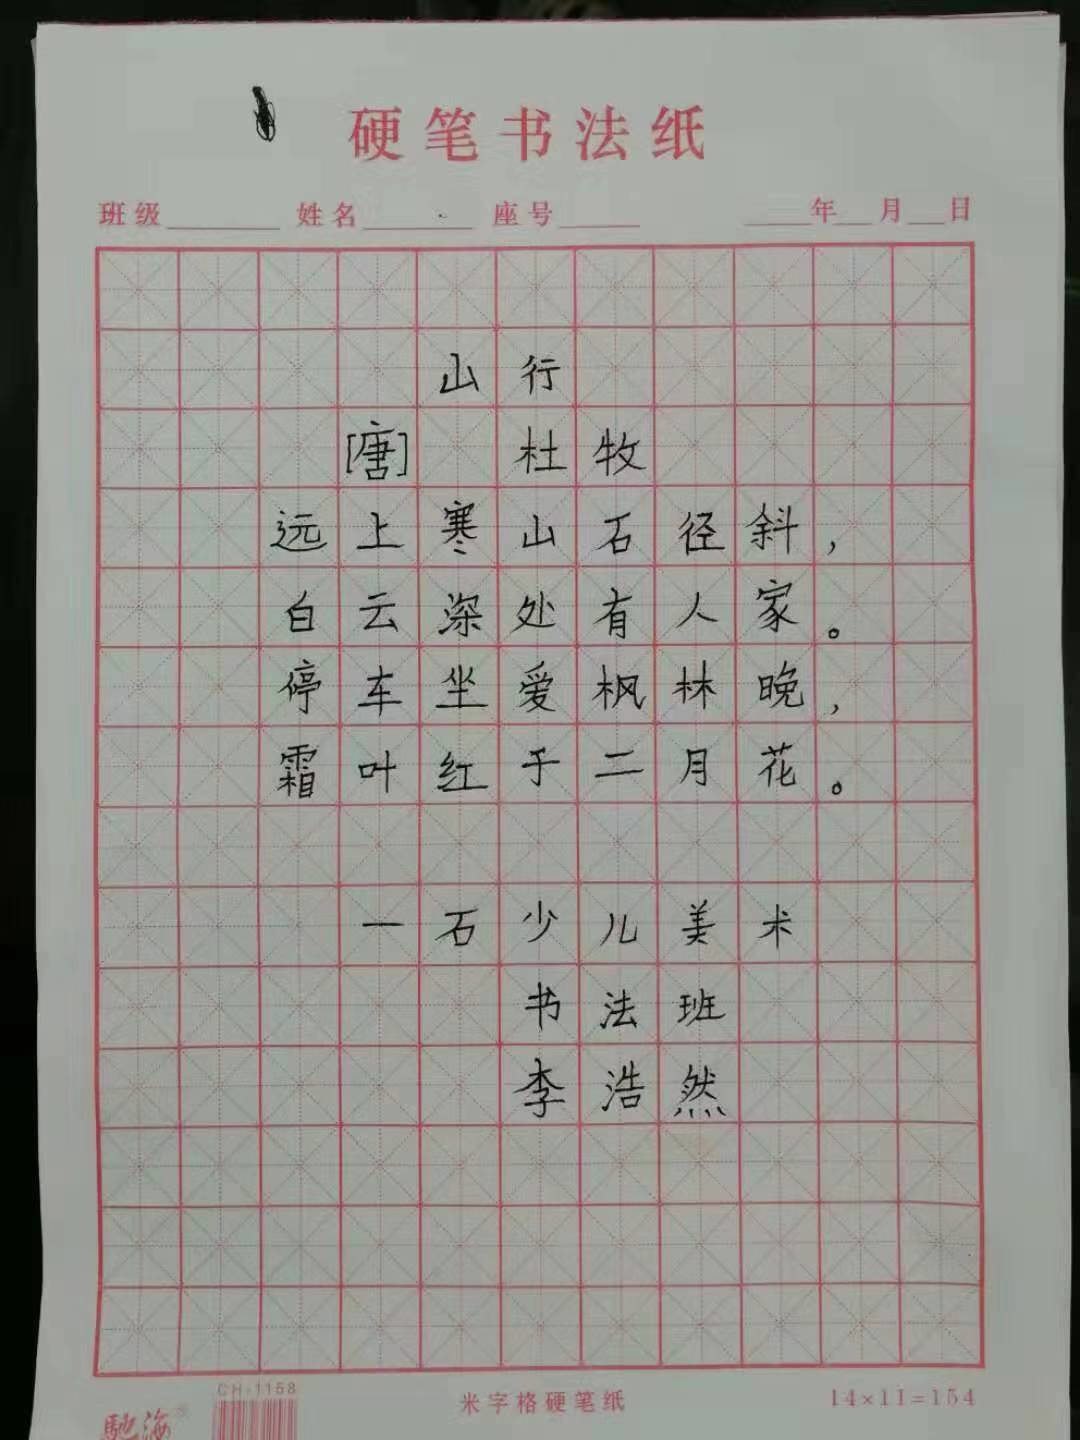 硬笔书法纸
班级 姓名 座号 年 月 日
山行
[唐] 杜牧
远上寒山石径斜，
白云深处有人家。
停车坐爱枫林晚，
霜叶红于二月花。
一石少儿美术
书法班
李浩然
CH-1158
驰海® 米字格硬笔纸 14×11=154